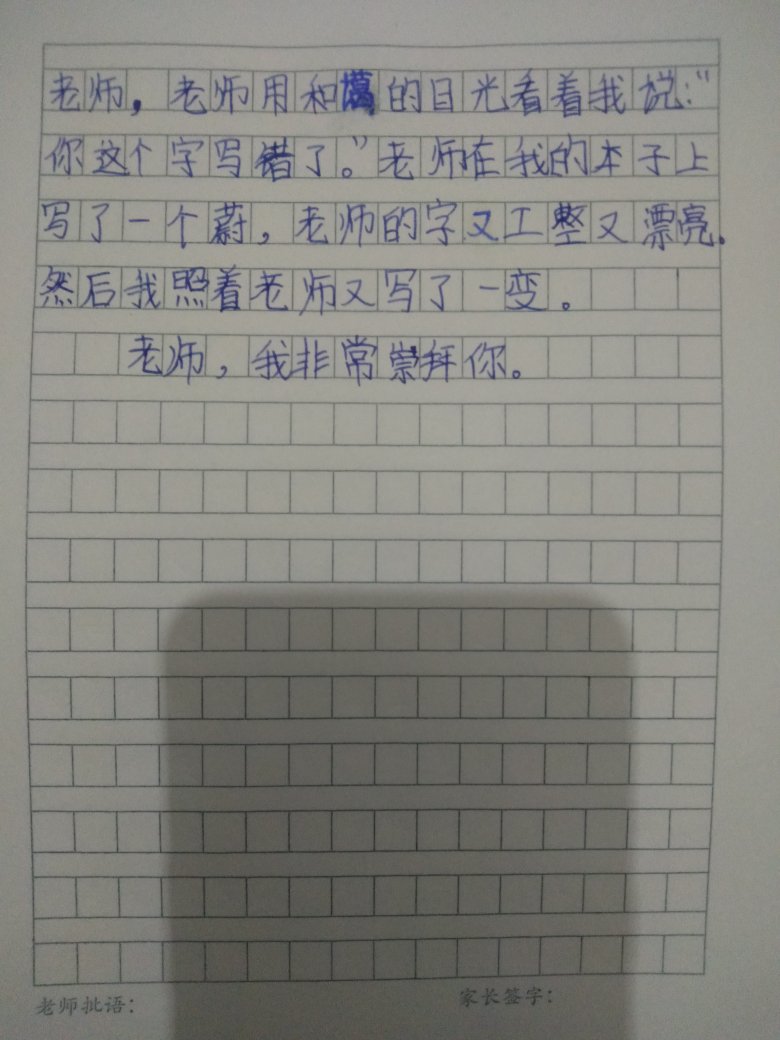 老师，老师用和蔼的目光看着我说：“
你这个字写错了。”老师在我的本子上
写了一个蔚，老师的字又工整又漂亮.
然后我照着老师又写了一变。
老师，我非常崇拜你。
老师批语：
家长签字：